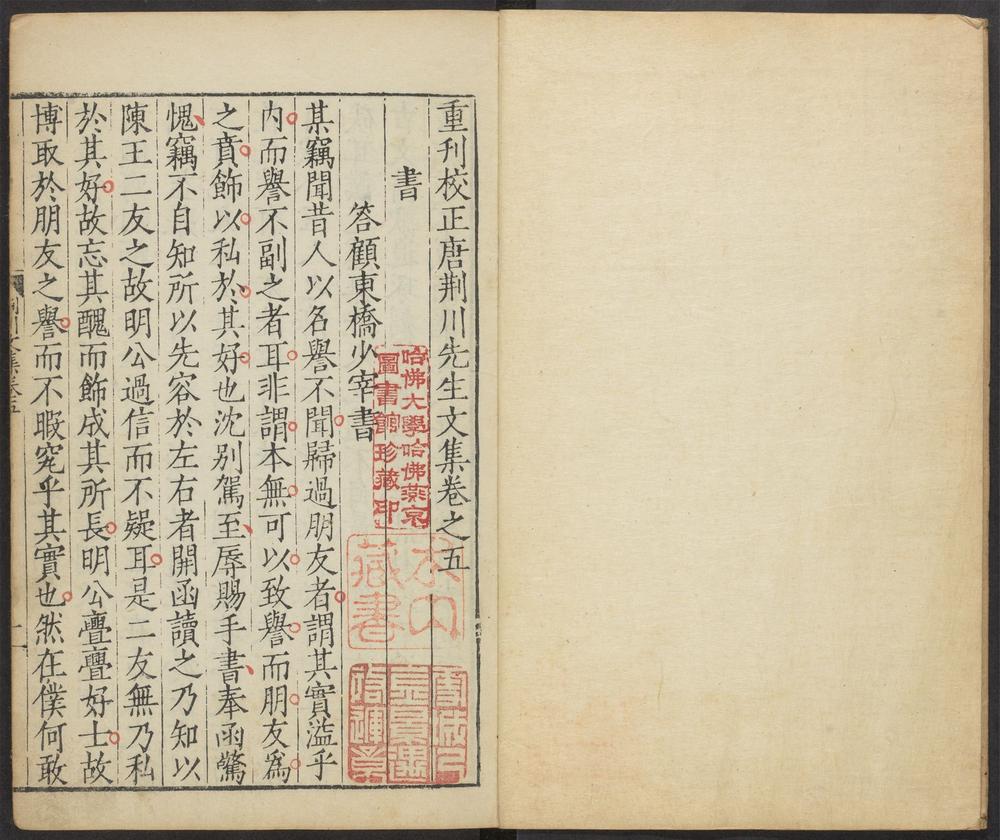 重刊校正唐荆川先生文集卷之五
書
答顧東橋少宰書
某竊聞昔人以名譽不聞歸過朋友者謂其實溢乎
内而譽不副之者耳非謂本無可以致譽而朋友爲
之賁飾以私於其好也沈别駕至辱賜手書奉函驚
愧竊不自知所以先容於左右者開函讀之乃知以
陳王二友之故明公過信而不疑耳是二友無乃私
於其好故忘其醜而飾成其所長明公亹亹好士故
博取於朋友之譽而不暇究乎其實也然在僕何敢
哈佛大學哈佛燕京
圖書館珍藏印
藏書